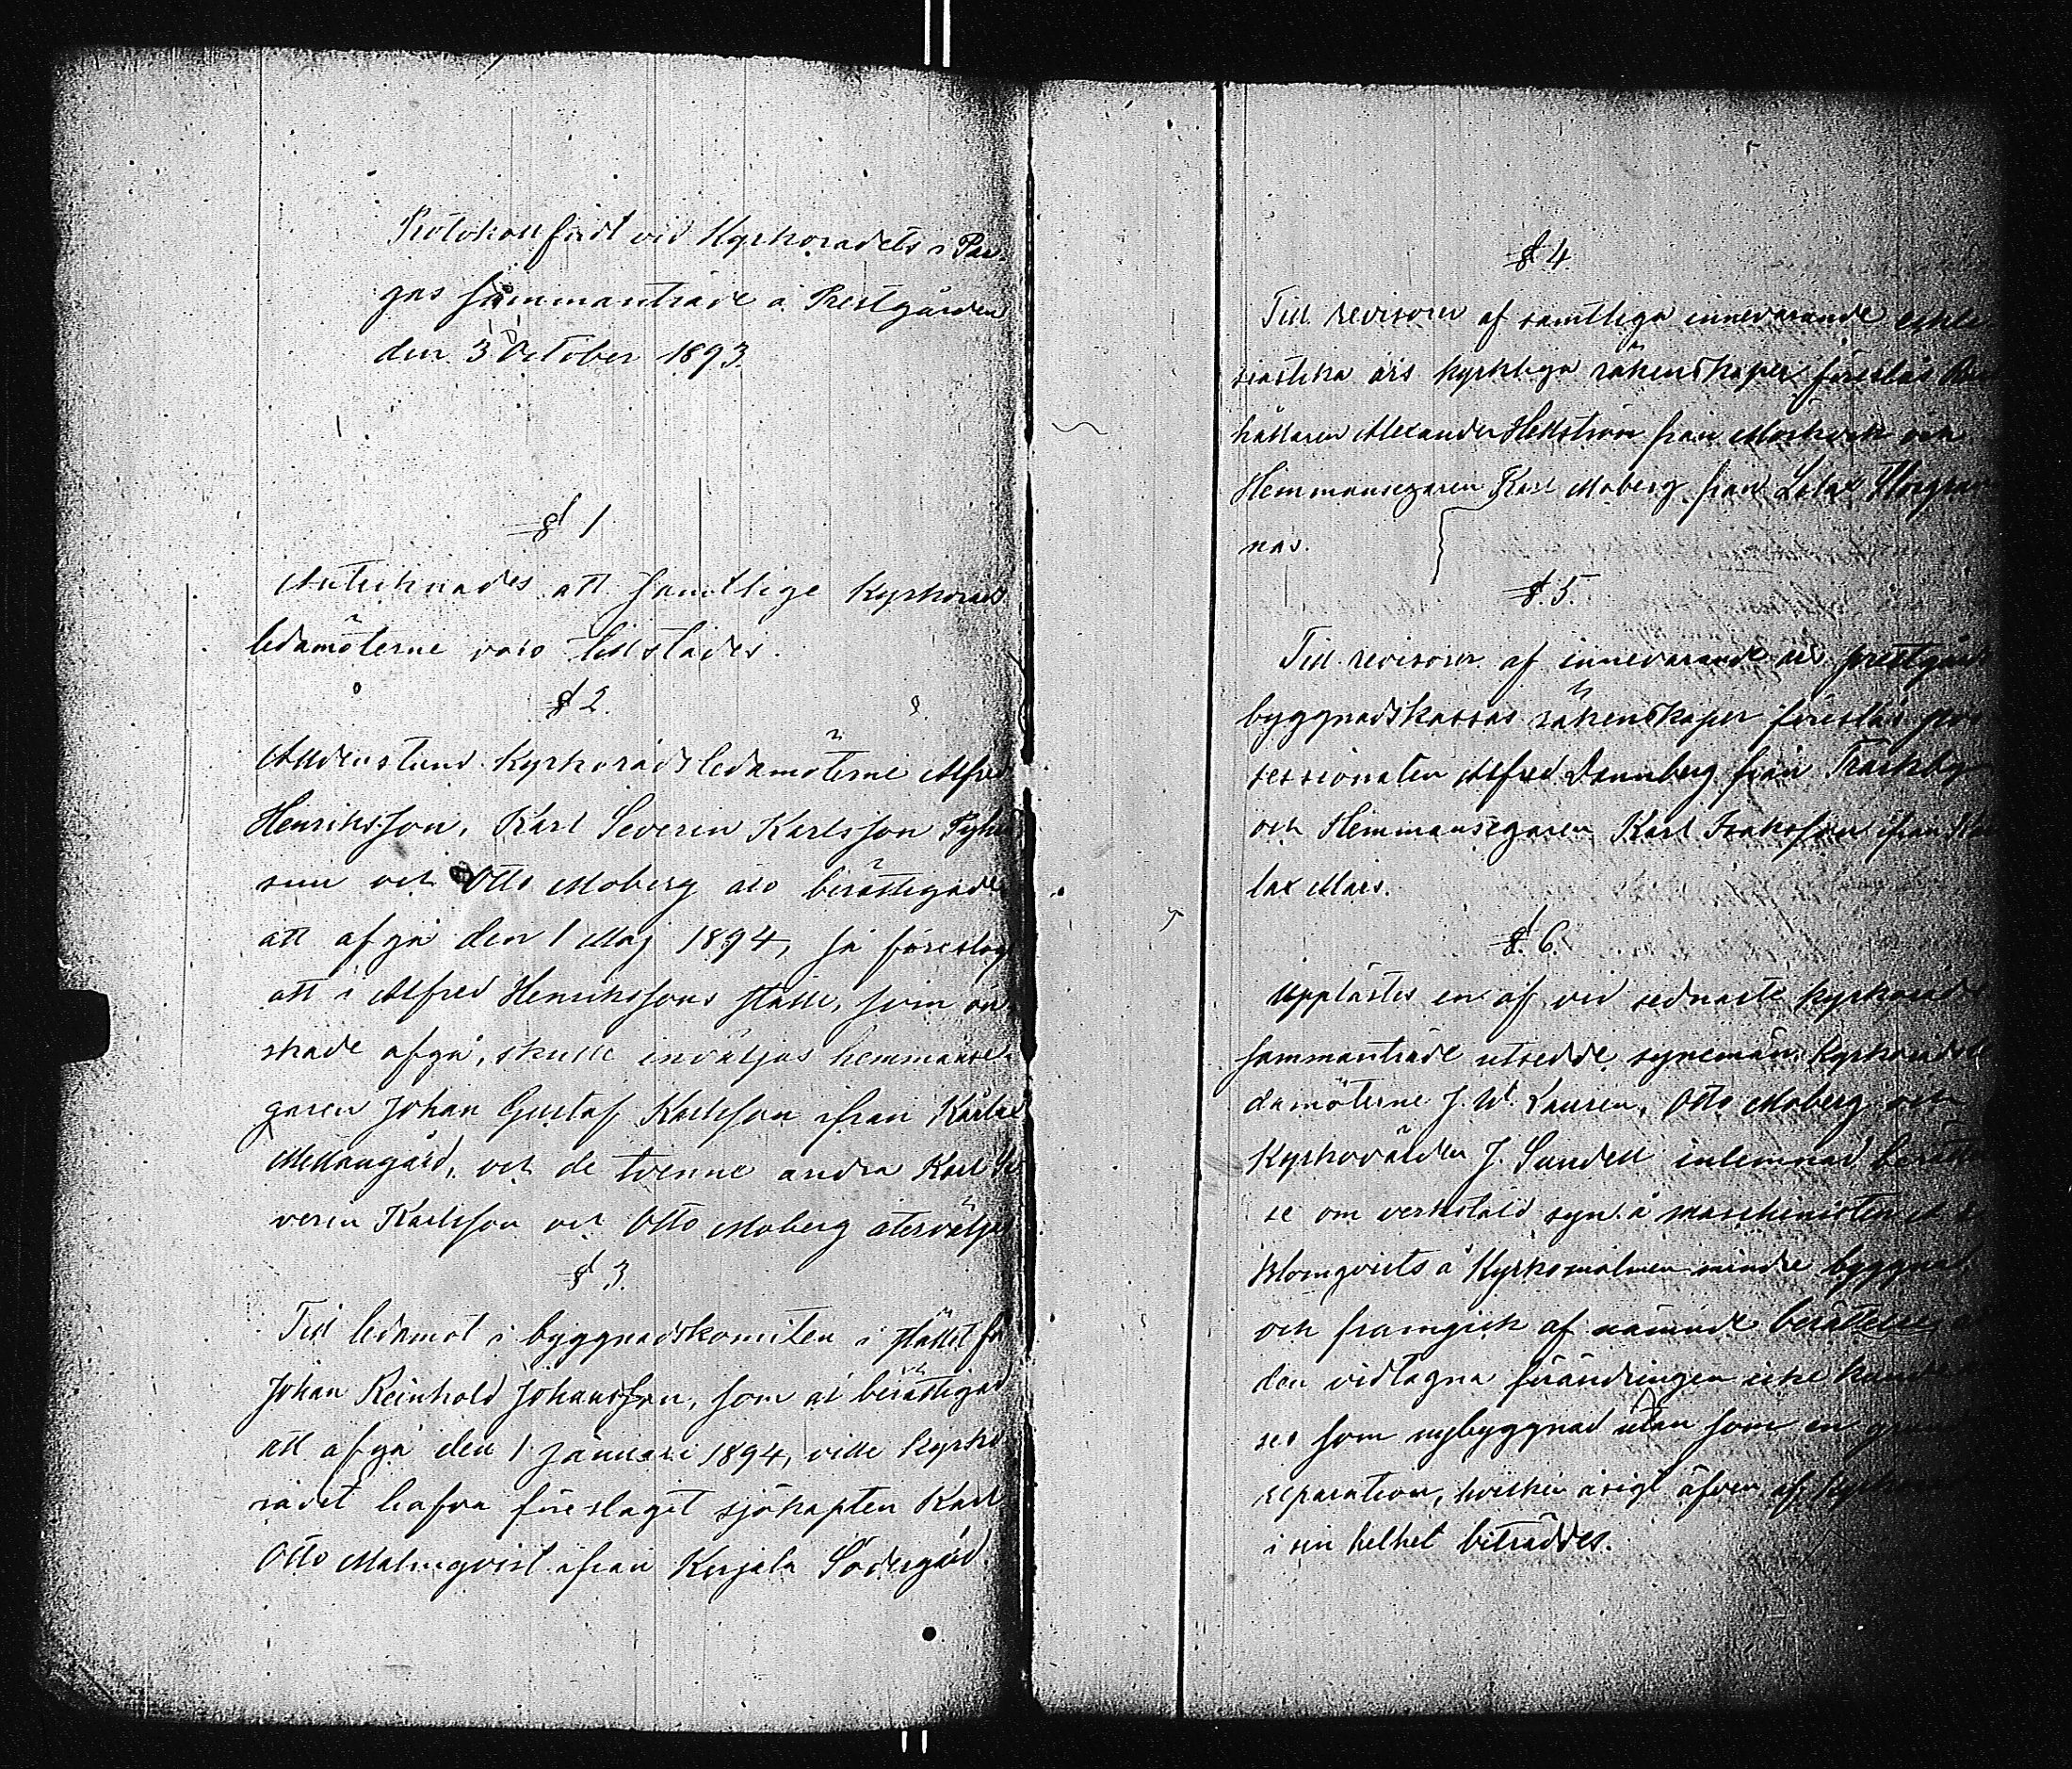 Protokoll fördt vid Kyrkorådets i Par-
gas sammanträde å Prestgården
den 3 October 1893.
§ 1
Antecknades att samtlige Kyrkoråds
ledamöterne voro tillstädes.
§ 2.
Alldenstund Kyrkorådsledamöterne Alfred
Henriksson, Karl Severin Karlsson
och Otto Moberg äro berättigade
att afgå den 1 Maj 1894, så föreslogs
att i Alfred Henrikssons ställe, som ön-
skade afgå, skulle inväljas hemmanse-
garen Johan Gustaf Karlsson ifrån
Mellangård, och de tvenne andra Karl Se
verin Karlsson och Otto Moberg återväljas
§ 3.
Till ledamot i byggnadskomiten i stället för
Johan Reinhold Johansson, som är berättigad
att afgå den 1 Januari 1894, ville Kyrko
rådet hafva föreslaget sjökapten Karl
Otto Malmqvist ifrån Kirjala Södergård
§ 4.
Till revisorer af samtliga innevarande eckle
siastika års kyrkliga räkenskaper föreslås
hållaren Alexander Hellström från och
Hemmansegaren Karl Moberg från
näs.
§ 5.
Till revisorer af innevarande års prestgårds
byggnadskassas räkenskaper föreslås pos
sessionaten Alfred Dannberg från
och Hemmansegaren Karl Isaksson ifrån
lax Mars.
§ 6.
Upplästes en af vid sednaste kyrkoråds
sammanträde utsedde synemän, Kyrkorådsle
damöterne J. W. Lauren, Otto Moberg och
Kyrkovärden J. Sundell inlemnad berättel
se om verkstäld syn å maschinisten
Blomqvists å Kyrkomalmen mindre byggnad
och framgick af nämnde berättelse att
den vidtagna förändringen icke kunde
ses som nybyggnad utan som en
reparation, hvilken åsigt äfven af Kyrkorådet
i sin helhet biträddes.